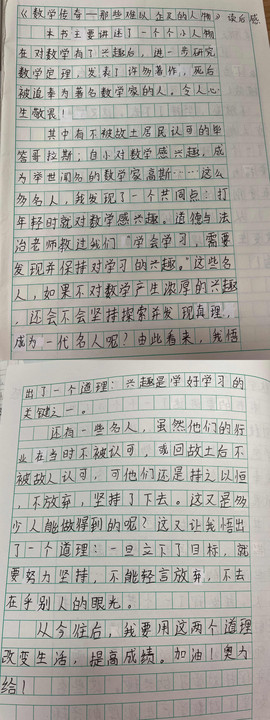 《数学传奇——那些难以企及的人物》读后感
本书主要讲述了一个个小人物
在对数学有了兴趣后，进一步研究
数学定理，发表了许多著作，死后
被追奉为著名数学家的人，令人心
生敬畏！
其中有不被故土居民认可的毕
答哥拉斯；自小对数学感兴趣，成
为举世闻名的数学家高斯……这么
多名人，我发现了一个共同点：打
年轻时就对数学感兴趣。道德与法
治老师教过我们“学会学习，需要
发现并保持对学习的兴趣。”这些名
人，如果不对数学产生浓厚的兴趣
，还会不会坚持探索并发现真理，
成为一代名人呢？由此看来，我悟
出了一个道理：兴趣是学好学习的
关键之一。
还有一些名人，虽然他们的行
业在当时不被认可，或回故土后不
被故人认可，可他们还是持之以恒
，不放弃，坚持了下去。这又是多
少人能做得到的呢？这又让我悟出
了一个道理：一旦立下了目标，就
要努力坚持，不能轻言放弃，不去
在乎别人的眼光。
从今往后，我要用这两个道理
改变生活，提高成绩。加油！奥力
给！